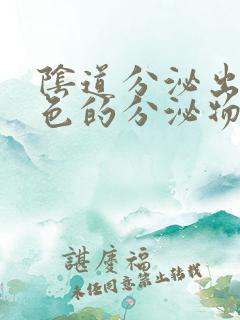 陰道分泌出
色的分泌物
諶慶福
未经同意禁止转载